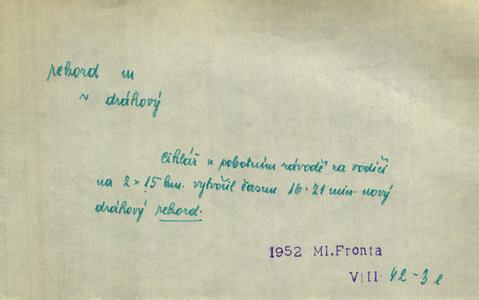 rekord m
~ dráhový
Cihlář v sobotním závodě za vodiči
na 2 × 15 km. vytvořil časem 16·21 min. nový
dráhový rekord.
1952 Ml. Fronta
VIII 42 - 3